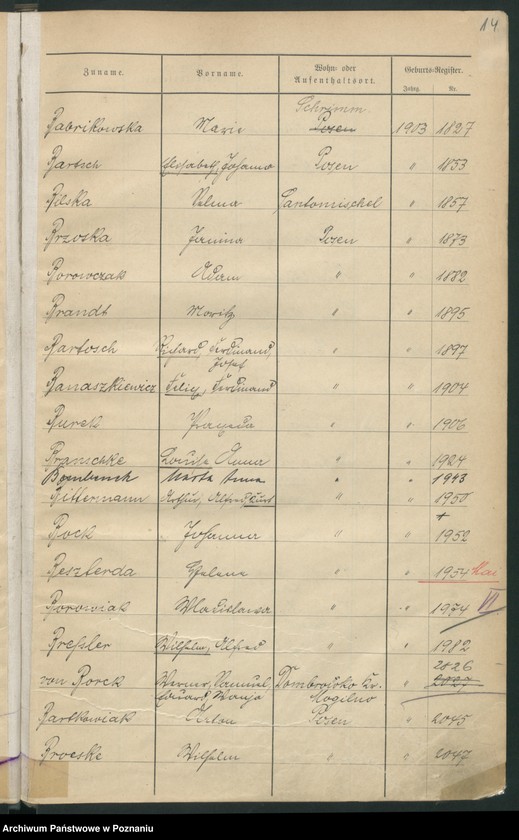 14.
Zuname. Vorname. Wohn- oder Aufenthaltsort. Geburts-Register.
Jahrg. Nr.
Schrimm
Babrikowska Marie Posen 1903 1827
Bartsch Elisabeth, Johanna Posen " 1853
Bilska Selma Santomischel " 1857
Brzoska Janina Posen " 1873
Borowczak Adam " " 1882
Brandt Moritz " " 1895
Bartosch Richard, Ferdinand, " " 1897
Josef
Banaszkiewicz Felix, Ferdinand " " 1904
Burek " " 1906
Branschke Louise Anna " " 1924
Marta Anna " " 1943
Bittermann Arthur, Alfred Kurt " " 1950
+
Bock Johanna " " 1952
Beszterda Helene " " 1954 Mai
Borowiak Wladislawa " " 1974 VI
Breßler Wilhelm, Alfred " " 1982
2026
von Borck Werner, Samuel, Dombrowko Kr. " 2027
Eduard, Mogilno
Bartkowiak Anton Posen " 2045
Broeske Wilhelm " " 2047
Archiwum Państwowe w Poznaniu